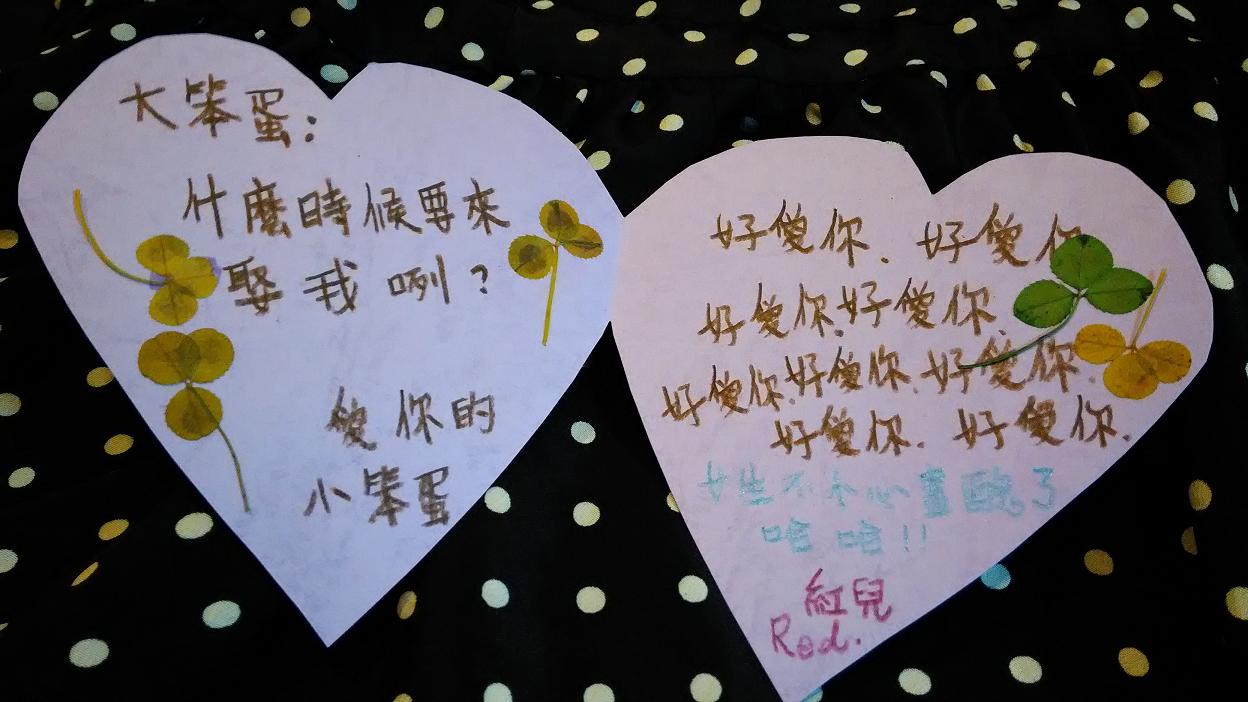 大笨蛋:
什麼時候要來
娶我咧?
愛你的
小笨蛋
好愛你、好愛你
好愛你、好愛你、
好愛你、好愛你、好愛你、
好愛你、好愛你、
女生不小心畫醜了
哈哈!!
紅兒
Red.